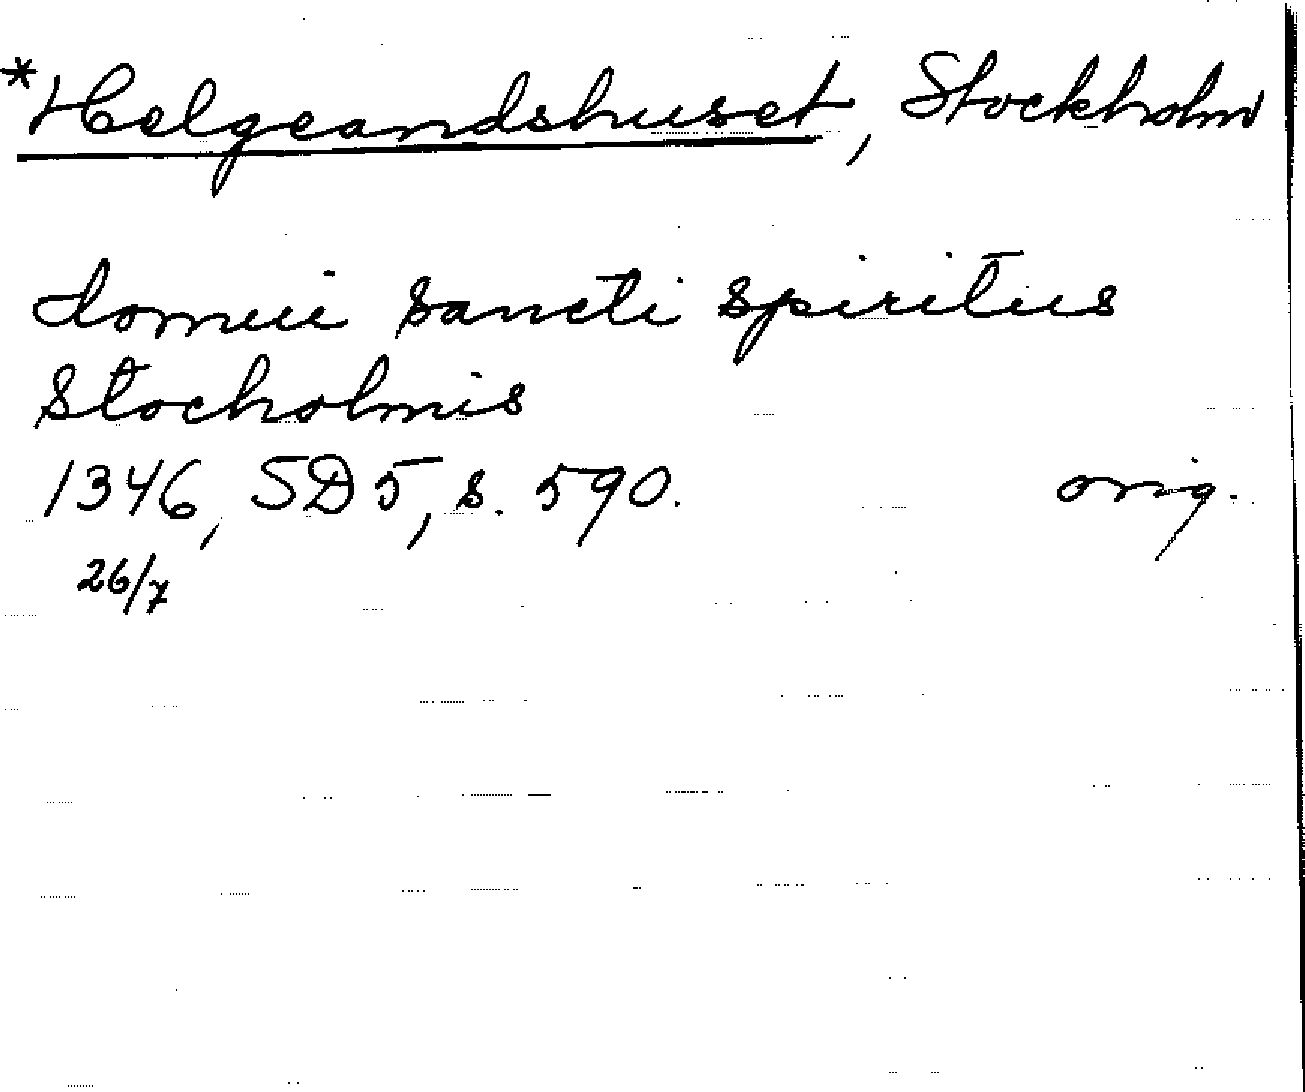 *Helgeandshuset, Stockholm
domui sancti spiritus
Stocholmis
1346, SD 5, s. 590. orig.
26/7